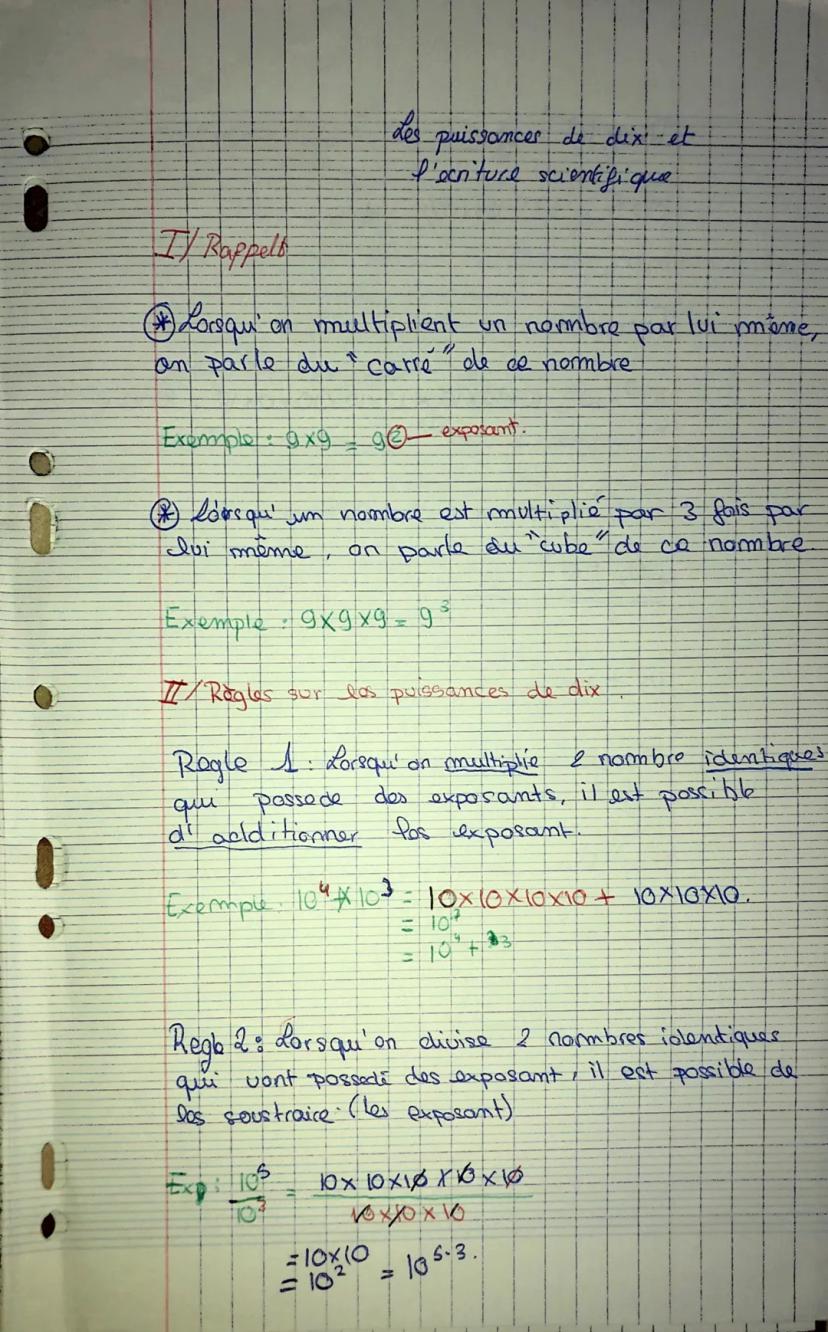 Les puissances de dix et
l'écriture scientifique
I/ Rappels
* Lorsqu'on multiplient un nombre par lui même,
on parle du "carré" de ce nombre
Exemple : 9x9 = 9② — exposant.
* Lorsqu'un nombre est multiplié par 3 fois par
lui même, on parle du "cube" de ce nombre
Exemple : 9x9x9 = 9³
II/ Règles sur les puissances de dix.
Regle 1 : Lorsqu'on multiplie 2 nombre identiques
qui possede des exposants, il est possible
d'additionner les exposant.
Exemple : 10⁴ x 10³ = 10x10x10x10 + 10x10x10.
= 10⁷
= 10⁴ + ³
Regle 2 : Lorsqu'on divise 2 nombres identiques
qui vont possedé des exposant, il est possible de
les soustraire. (les exposant)
Exp : 10⁵/10³ = 10x10x10x10x10/10x10x10
= 10x10
= 10² = 10⁵⁻³.